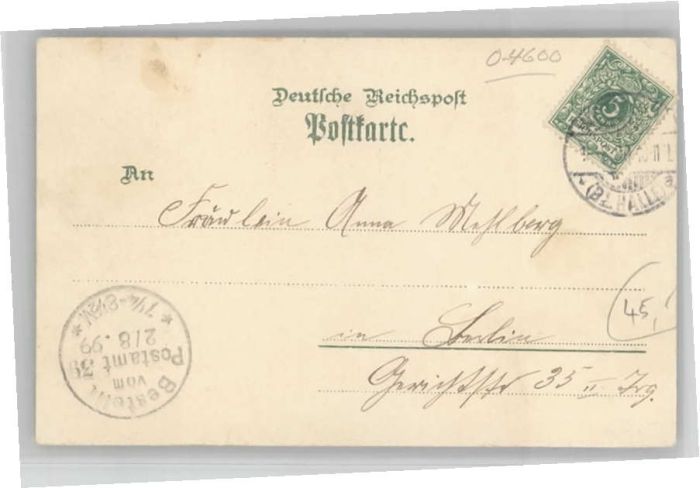 0-4600
Deutsche Reichspost
Postkarte.
5
An
Fräulein Anna Mehlberg
45,
in Berlin
Gerichtstr 35 II Trg.
Bestellt
vom
Postamt 39
2/8.99
7¼-8½N
(Bz. HALLE)